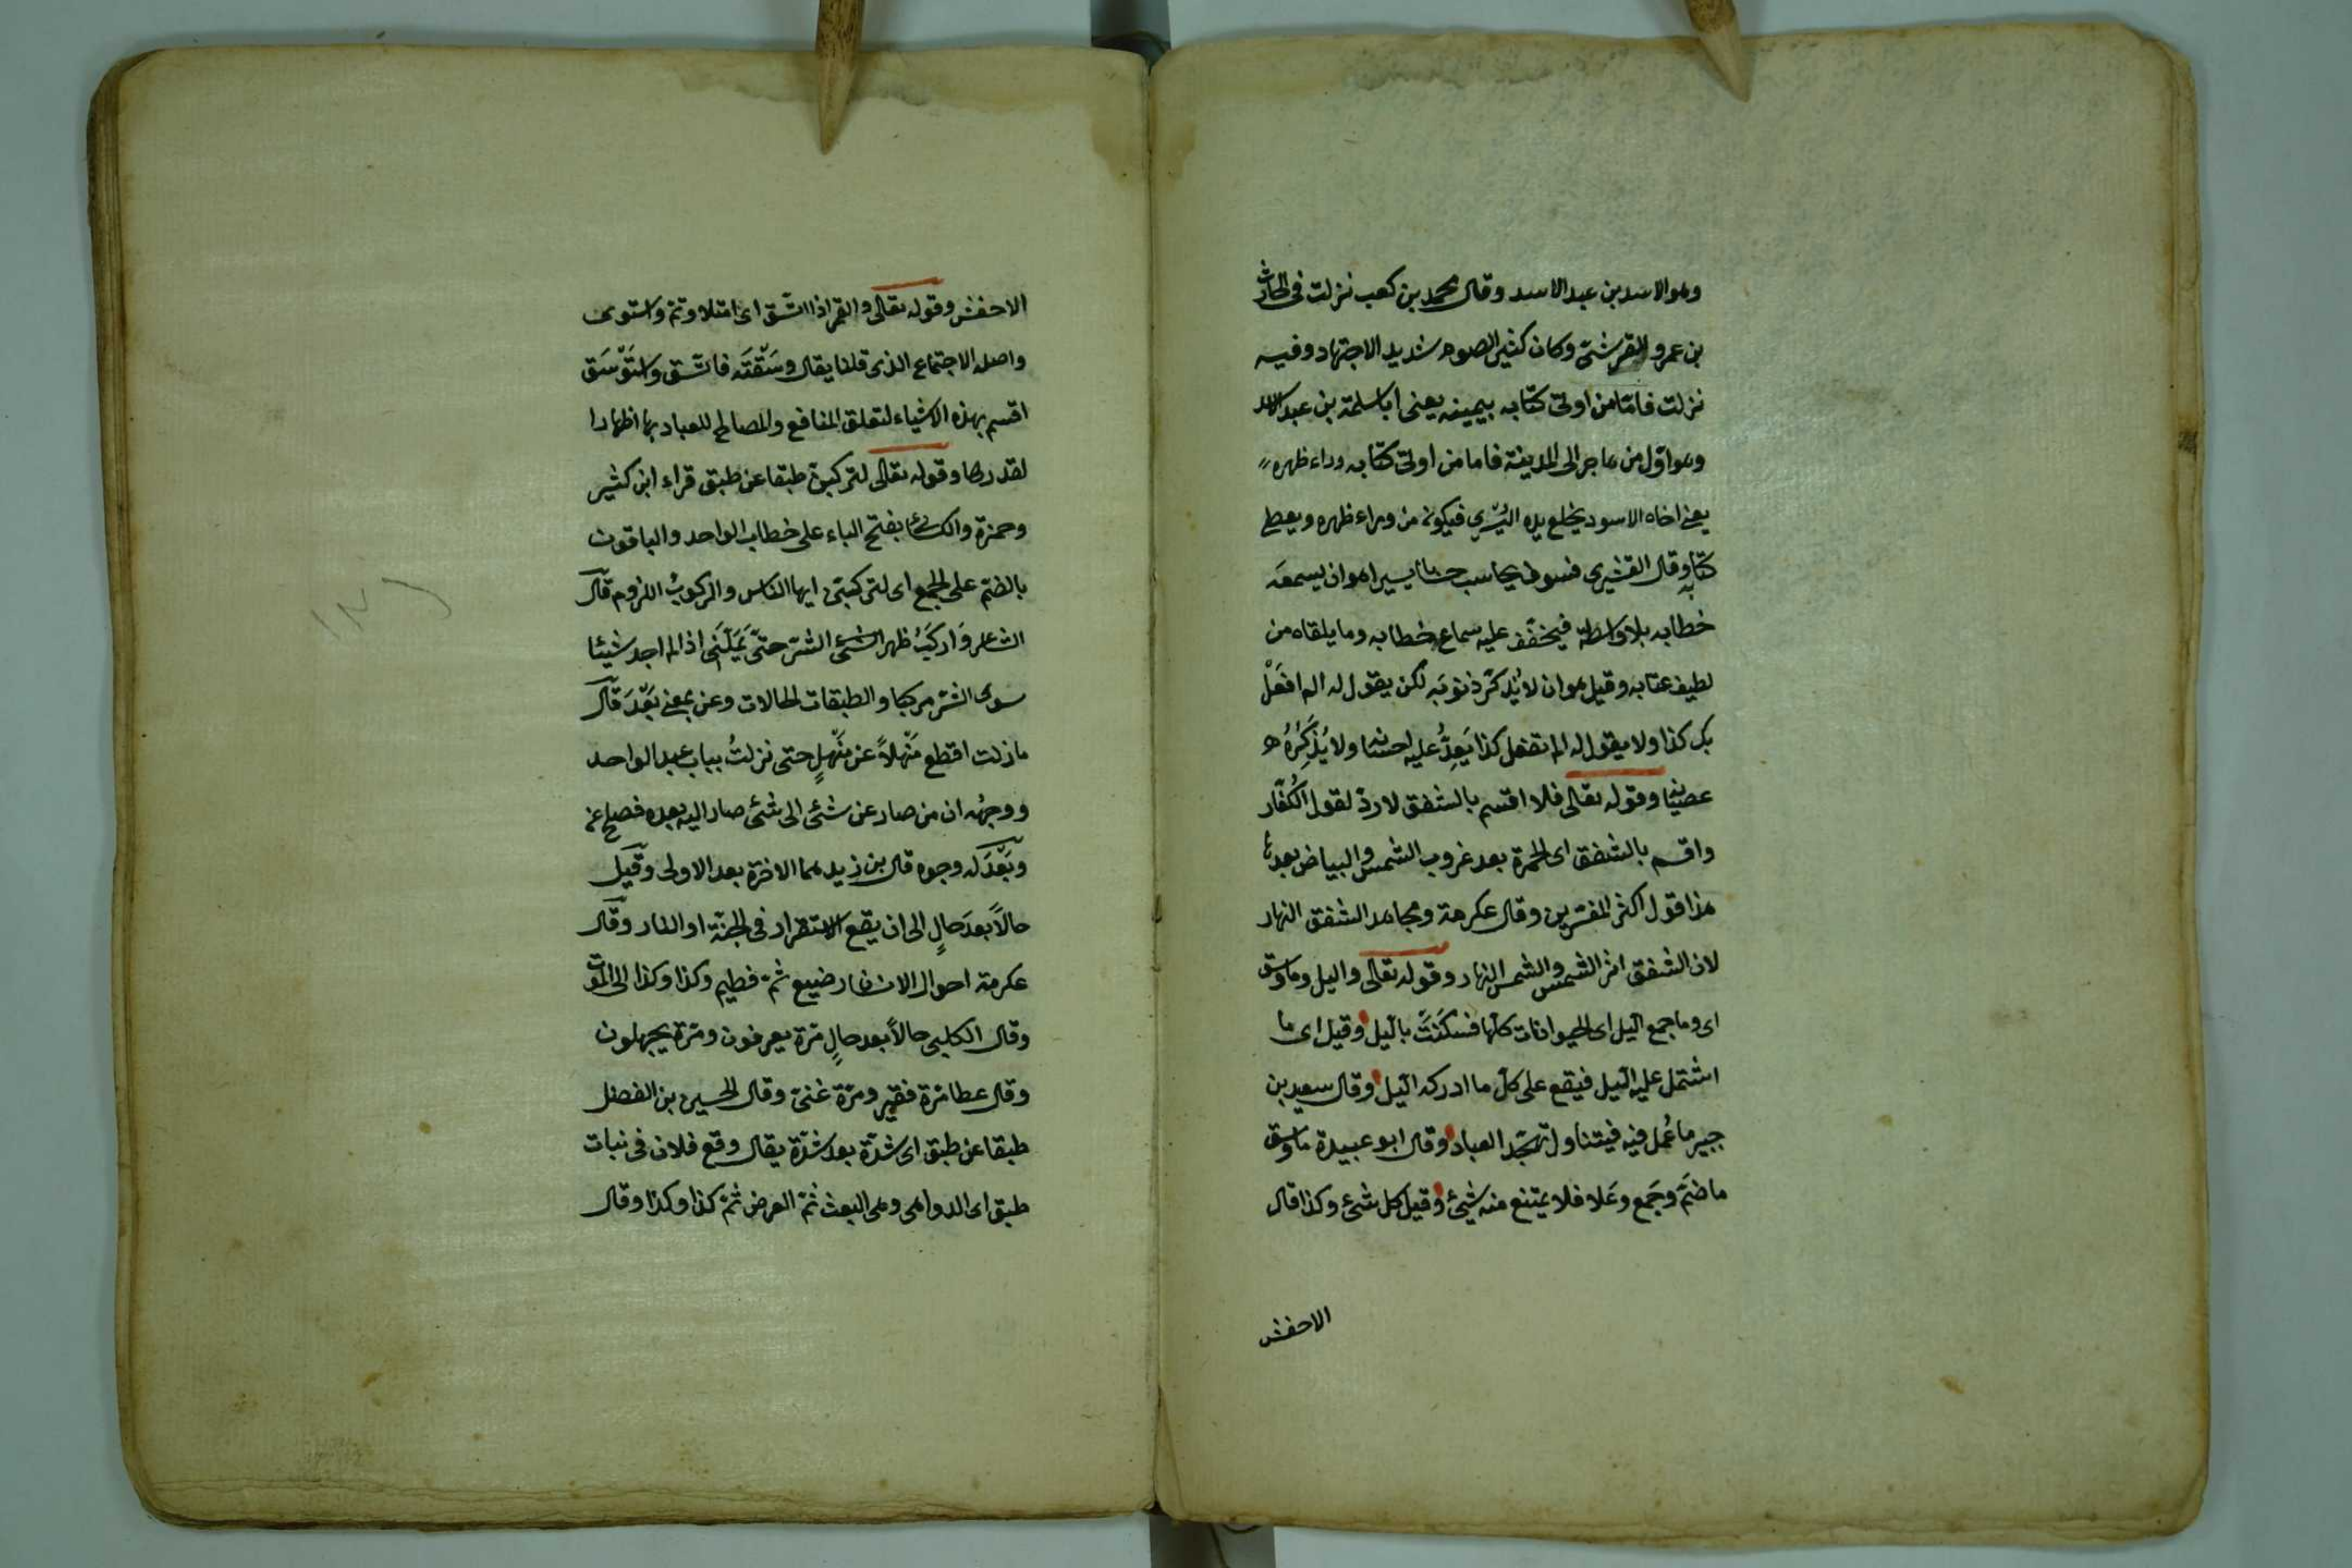 وهو الاسد بن عبد الاسد وقال محمد بن كعب نزلت فى الحارث
بن عمرو القرشىّ وكان كثير الصوم شديد الاجتهاد وفيه
نزلت فامّا من اوتى كتابه بيمينه يعنى ابا سلمة بن عبد الاسد
وهو اوّل من هاجر الى المدينة فاما من اوتى كتابه وراء ظهره
يعنى اخاه الاسود يخلع يده اليسرى فيكون من وراء ظهره ويعطى
كتابه وقال القشيرى فسوف يحاسب حسابا يسيرا هو ان يسمعه
خطابه بلا واسطة فيخفّف عليه سماع خطابه وما يلقاه من
لطيف عتابه وقيل هو ان لا يُذكّر ذنوبه لكن يقول له الم افعَلْ
بك كذا ولا يقول له الم تفعل كذا يَعِدُّ عليه احسانه ولا يُذَكِّرُهُ
عصيانه وقوله تعالى فلا اقسم بالشفق لا ردّ لقول الكُفّار
واقسم بالشفق اى الحمرة بعد غروب الشمس والبياض بعدها
هذا قول اكثر المفسّرين وقال عكرمة ومجاهد الشفق النهار
لان الشفق اثر الشمس والشمس النهار وقوله تعالى واليل وما وسق
اى وما جمع الّيل اى الحيوانات كلّها فسكَنَتْ بالّيل وقيل اى ما
اشتمل عليه الّيل فيقع على كل ما ادركه الّيل وقال سعيد بن
جبير ما عُمل فيه فيتناول تهجّد العباد وقال ابو عبيدة ما وسق
ما ضَمَّ وجَمع وعَلا فلا يمتنع منه شيئ وقيل كل شئ وكذا قال
الاخفش
الاخفش وقوله تعالى والقمر اذا اتّسق اى امتلا وتمّ واستوى
واصله الاجتماع الذى قلنا يقال وسَقْتَه فاتّسق واسْتَوْسَقَ
اقسم بهذه الاشياء لتعلق المنافع والمصالح للعباد بها اظهارا
لقدرها وقوله تعالى لتركبنّ طبقا عن طبق قراء ابن كثير
وحمزة والكسائى بفتح الباء على خطاب الواحد والباقون
بالضّم على الجمع اى لتركبنّ ايها الناس والركوبُ اللزوم قال
الشاعر وَاركَبُ ظهر الشئ الشرّ حتّى يَمَلَّنى اذا لم اجد شيئا
سوى الشرّ مركبا والطبقات الحالات وعن بمعنى بَعْدَ قال
ما زلت اقطع مَنْهلاً عن مَنْهلٍ حتى نزلتُ بباب عبد الواحد
ووجهُه ان من صار عن شئ الى شئ صار اليه بعده فصلح عن
وبَعْدَ له وجوه قال بن زيد هما الاخرة بعد الاولى وقيل
حالاً بعدَ حالٍ الى ان يقع الاستقرار فى الجنّة او النار وقال
عكرمة احوال الانسان رضيع ثمّ فطيم وكذا وكذا الى الموت
وقال الكلبى حالاً بعد حالٍ مّرة يعرفون ومّرة يجهلون
وقال عطا مّرة فقير ومّرة غنىّ وقال الحسين بن الفضل
طبقا عن طبق اى شدّة بعد شدّة يقال وقع فلان فى نبات
طبق اى الدواهى وهى البعث ثمّ العرض ثمّ كذا وكذا وقال